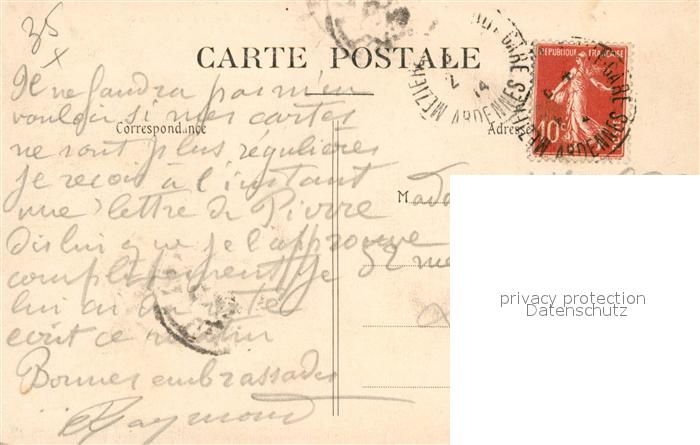 35
x
CARTE POSTALE
REPUBLIQUE FRANÇAISE
10c
MEZIERES GARE ARDENNES
Correspondance
Adresse
Il ne faudra pas m'en
vouloir si mes cartes
ne sont plus régulières
je reçois à l'instant
une lettre de Pierre
Dis lui que je l'approuve
complètement je
lui ai du reste
écrit ce matin
Bonnes embrassades
Raymond
M
privacy protection
Datenschutz